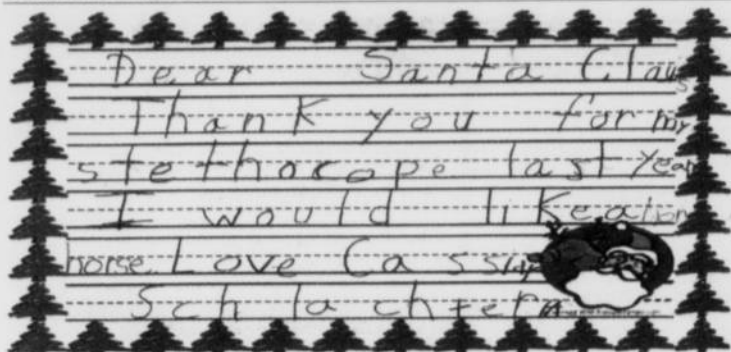 Dear Santa Claus
Thank you for my
stethocope last year
I would like a
horse. Love Cassidy
Schlachter